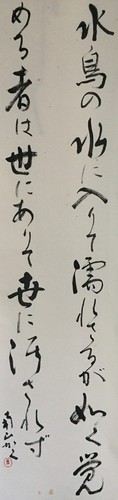 水鳥の水に入りて濡れざるが如く覚
める者は世にありて世に汚されず